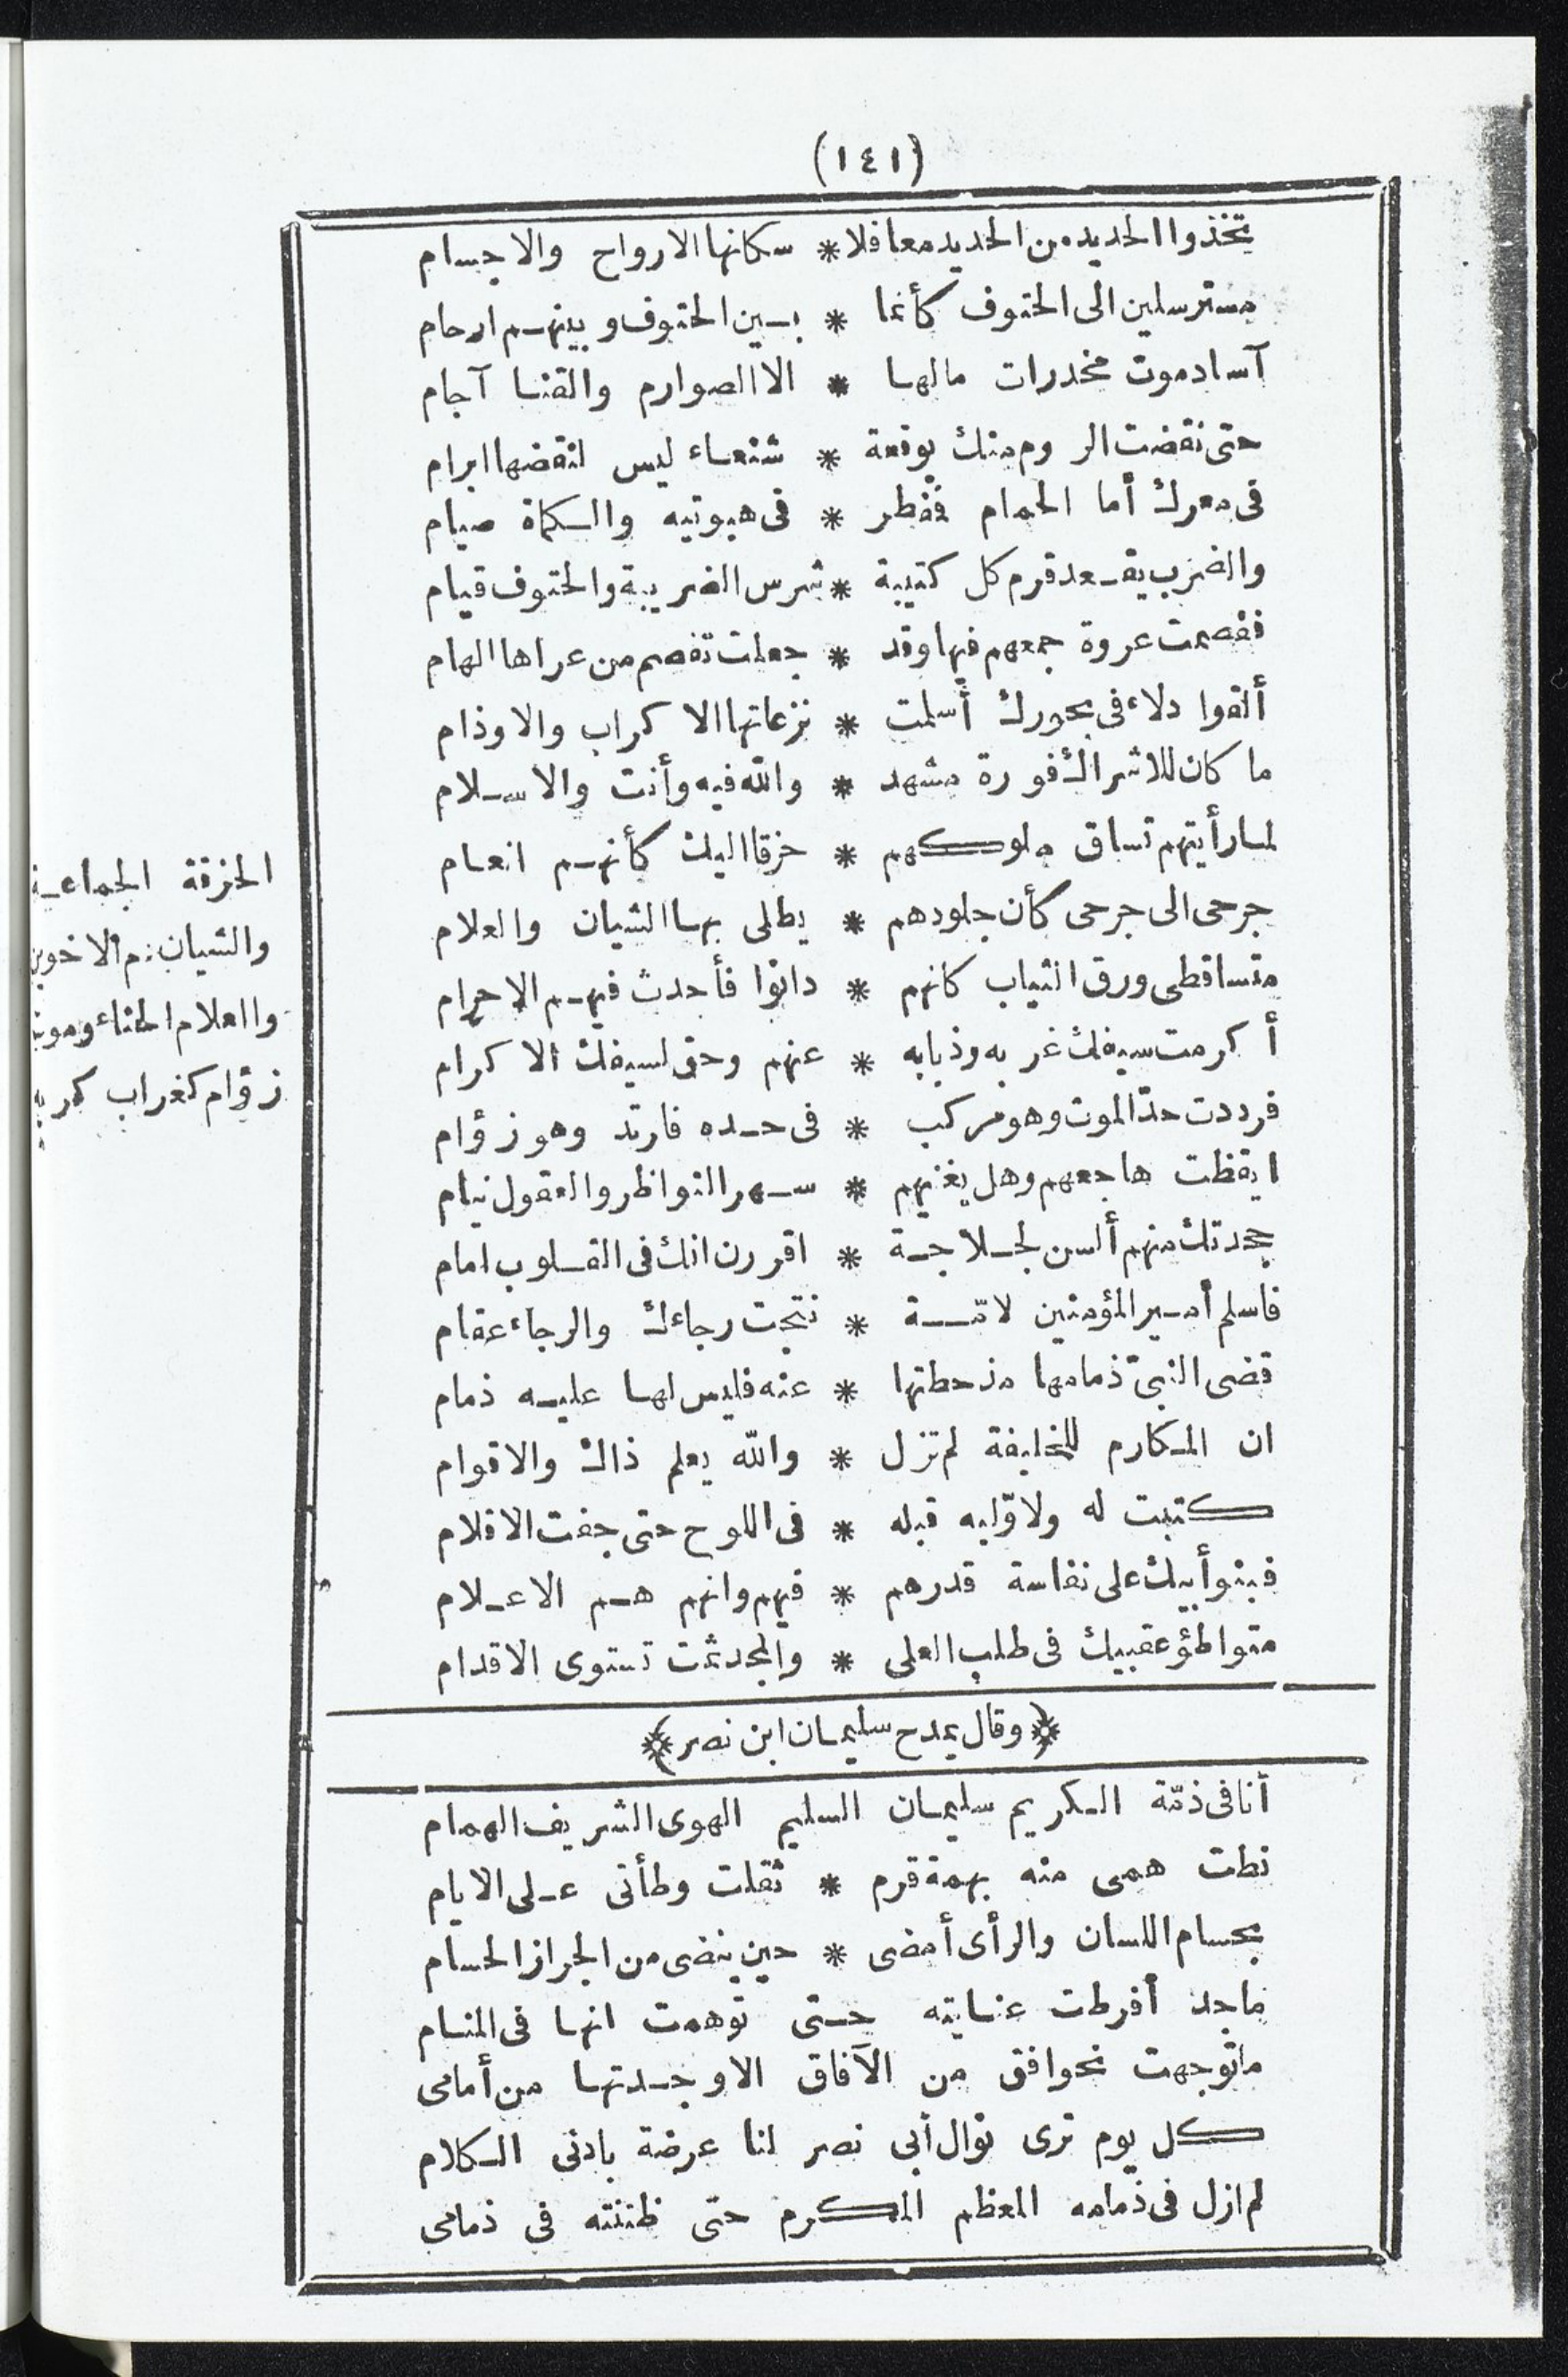 (١٤١)
تخذوا الحديد من الحديد معاقلا * سكانها الارواح والاجسام
مسترسلين الى الحتوف كأنما * بين الحتوف وبينهم ارحام
آساد موت مخدرات مالها * الا الصوارم والقنا آجام
حتى نقضت الروم منك بوقعة * شنعاء ليس لنقضها ابرام
فى معرك أما الحمام فمفطر * فى هبوتيه والكماة صيام
والضرب يقعد قرم كل كتيبة * شرس الضريبة والحتوف قيام
فقصمت عروة جمعهم فيها وقد * جعلت تفصم من عراها الهام
ألقوا دلاء فى بحورك أسلمت * نزعاتها الاكراب والاوذام
ما كان للاشراك فورة مشهد * والله فيه وأنت والاسلام
لما رأيتهم تساق ملوكهم * حزقا اليك كأنهم انعام
جرحى الى جرحى كأن جلودهم * يطلى بها الشيان والعلام
متساقطى ورق الثياب كانهم * دانوا فأحدث فيهم الاحرام
أكرمت سيفك غربه وذبابه * عنهم وحق لسيفك الاكرام
فرددت حد الموت وهو مركب * فى حده فارتد وهو زؤام
ايقظت هاجعهم وهل يغنيهم * سهر النواظر والعقول نيام
جحدتك منهم ألسن لجلاجة * اقررن انك فى القلوب امام
فاسلم أمير المؤمنين لامّة * نتجت رجاءك والرجاء عقام
قضى النبىّ ذمامها مذ حطتها * عنه فليس لها عليه ذمام
ان المكارم للخليفة لم تزل * والله يعلم ذاك والاقوام
كتبت له ولاوّليه قبله * فى اللوح حتى جفت الاقلام
فبنو أبيك على نفاسة قدرهم * فيهم وانهم هم الاعلام
متواطؤ عقبيك فى طلب العلى * والمجد ثمت تستوى الاقدام
الحزقة الجماعة
والشيان دم الاخوين
والعلام الحناء وموت
زؤام كغراب كريه
﴿وقال يمدح سليمان ابن نصر﴾
أنا فى ذمّة الكريم سليمان السليم الهوى الشريف الهمام
نطت همى منه بهمة قرم * ثقلت وطأتى على الايام
بحسام اللسان والرأى أمضى * حين ينضى من الجراز الحسام
ماجد أفرطت عنايته حتى توهمت انها فى المنام
ما توجهت نحو افق من الآفاق الا وجدتها من أمامى
كل يوم ترى نوال أبى نصر لنا عرضة بادنى الكلام
لم ازل فى ذمامه المعظم المكرم حتى ظننته فى ذمامى